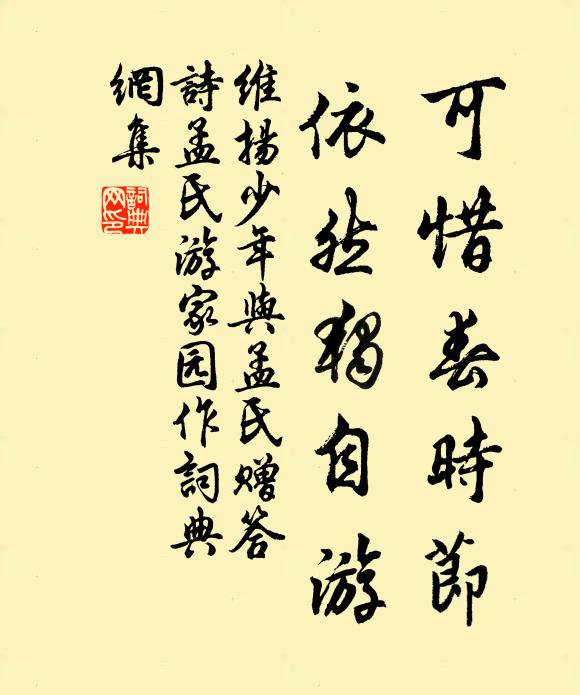 可惜春時節
依然獨自游
維揚少年與孟氏贈答
詩孟氏游家园作詞典
網集
詞典
网印